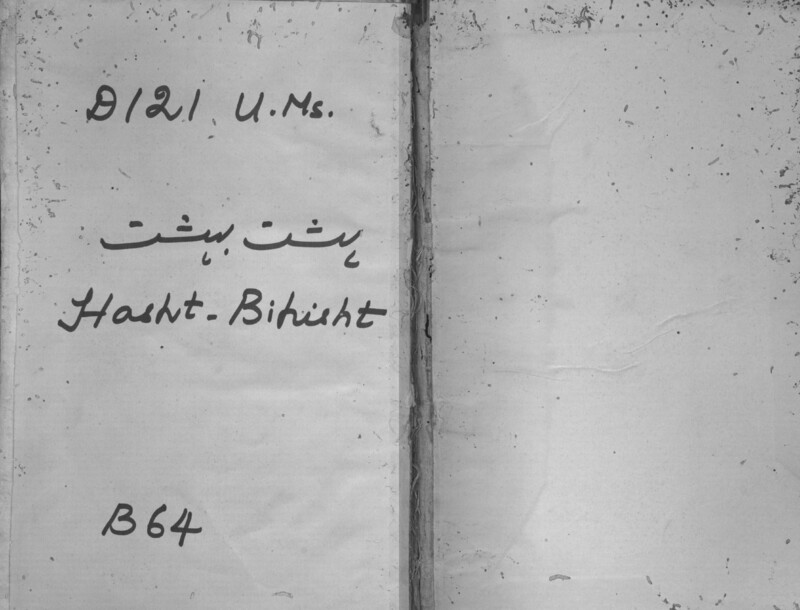 D121 U.Ms.
ہشت بہشت
Hasht-Bihisht
B64